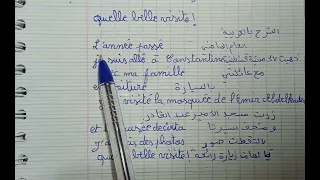 quelle belle visite!
الشرح بالعربية
L'année passé العام الماضي
je suis allé à Constantine ذهبت قسنطينة
ma famille مع عائلتي
voiture بالسيارة
visité la mosquée de l'Emir Abdelkader
زرت مسجد الأمير عبد القادر
et musée de cirta ومتحف سيرتا
des photos التقطت صور
quelle belle visite! يا لها من زيارة رائعة!